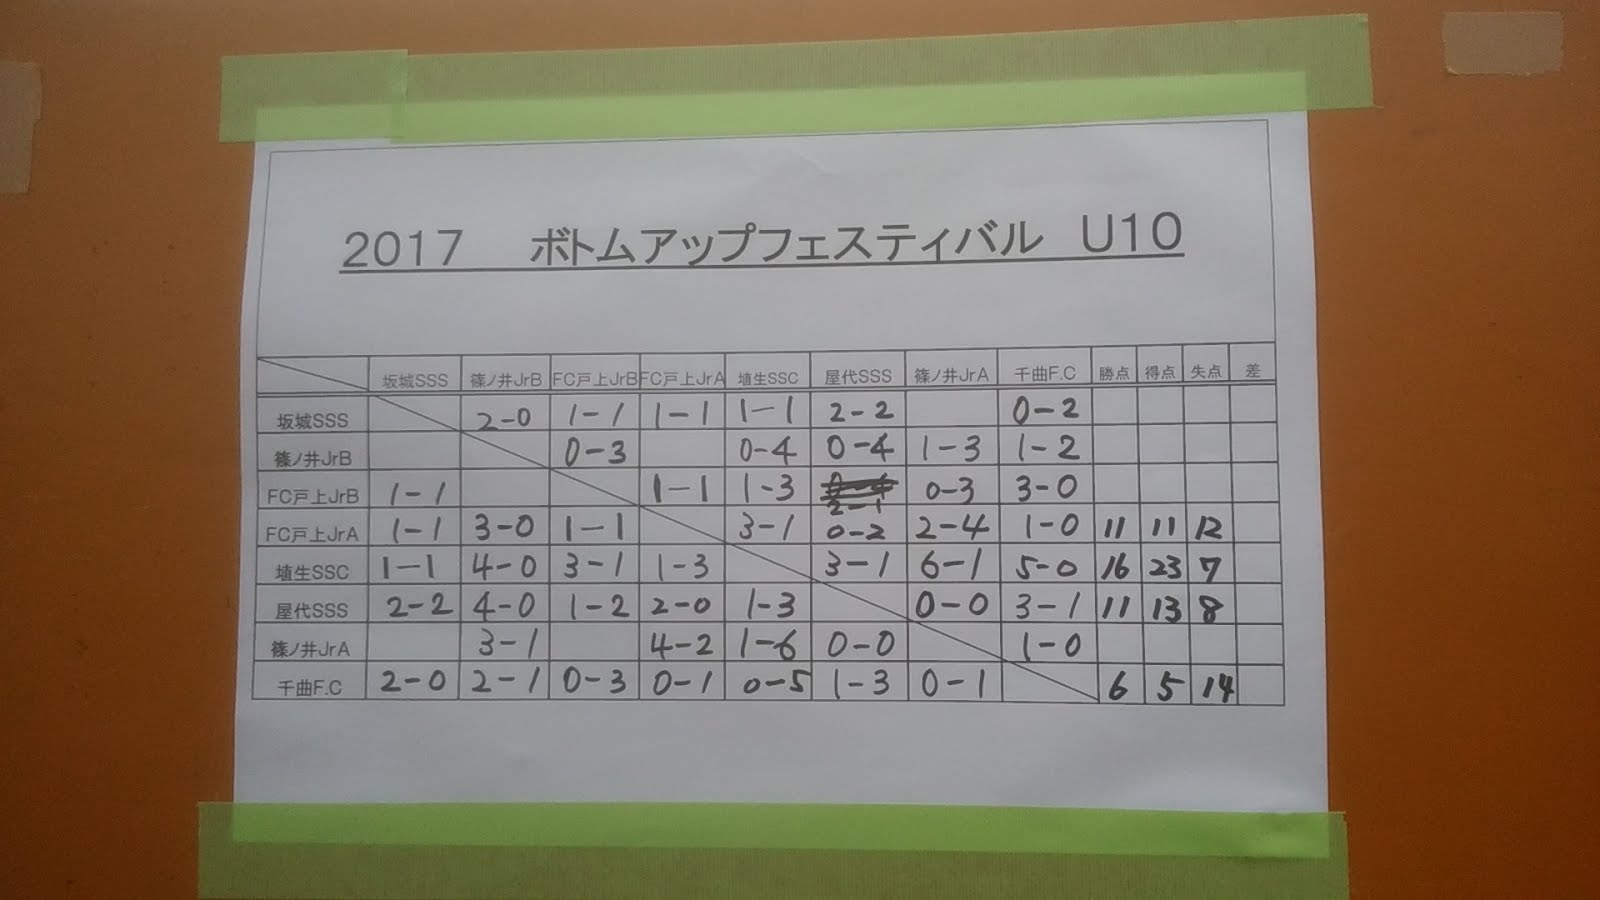 2017 ボトムアップフェスティバル U10
坂城SSS 篠ノ井JrB FC戸上JrB FC戸上JrA 埴生SSC 屋代SSS 篠ノ井JrA 千曲F.C 勝点 得点 失点 差
坂城SSS 2-0 1-1 1-1 1-1 2-2 0-2
篠ノ井JrB 0-3 0-4 0-4 1-3 1-2
FC戸上JrB 1-1 1-1 1-3 2-1 0-3 3-0
FC戸上JrA 1-1 3-0 1-1 3-1 0-2 2-4 1-0 11 11 12
埴生SSC 1-1 4-0 3-1 1-3 3-1 6-1 5-0 16 23 7
屋代SSS 2-2 4-0 1-2 2-0 1-3 0-0 3-1 11 13 8
篠ノ井JrA 3-1 4-2 1-6 0-0 1-0
千曲F.C 2-0 2-1 0-3 0-1 0-5 1-3 0-1 6 5 14